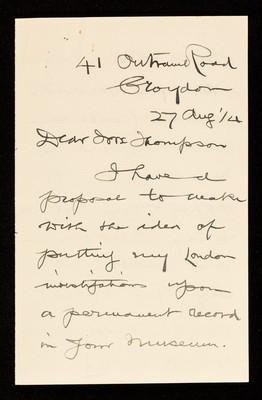 41 Outram Road
Croydon
27 Aug '14
Dear Thompson
I have a
proposal to make
with the idea of
putting my London
investigations upon
a permanent record
in your Museum.